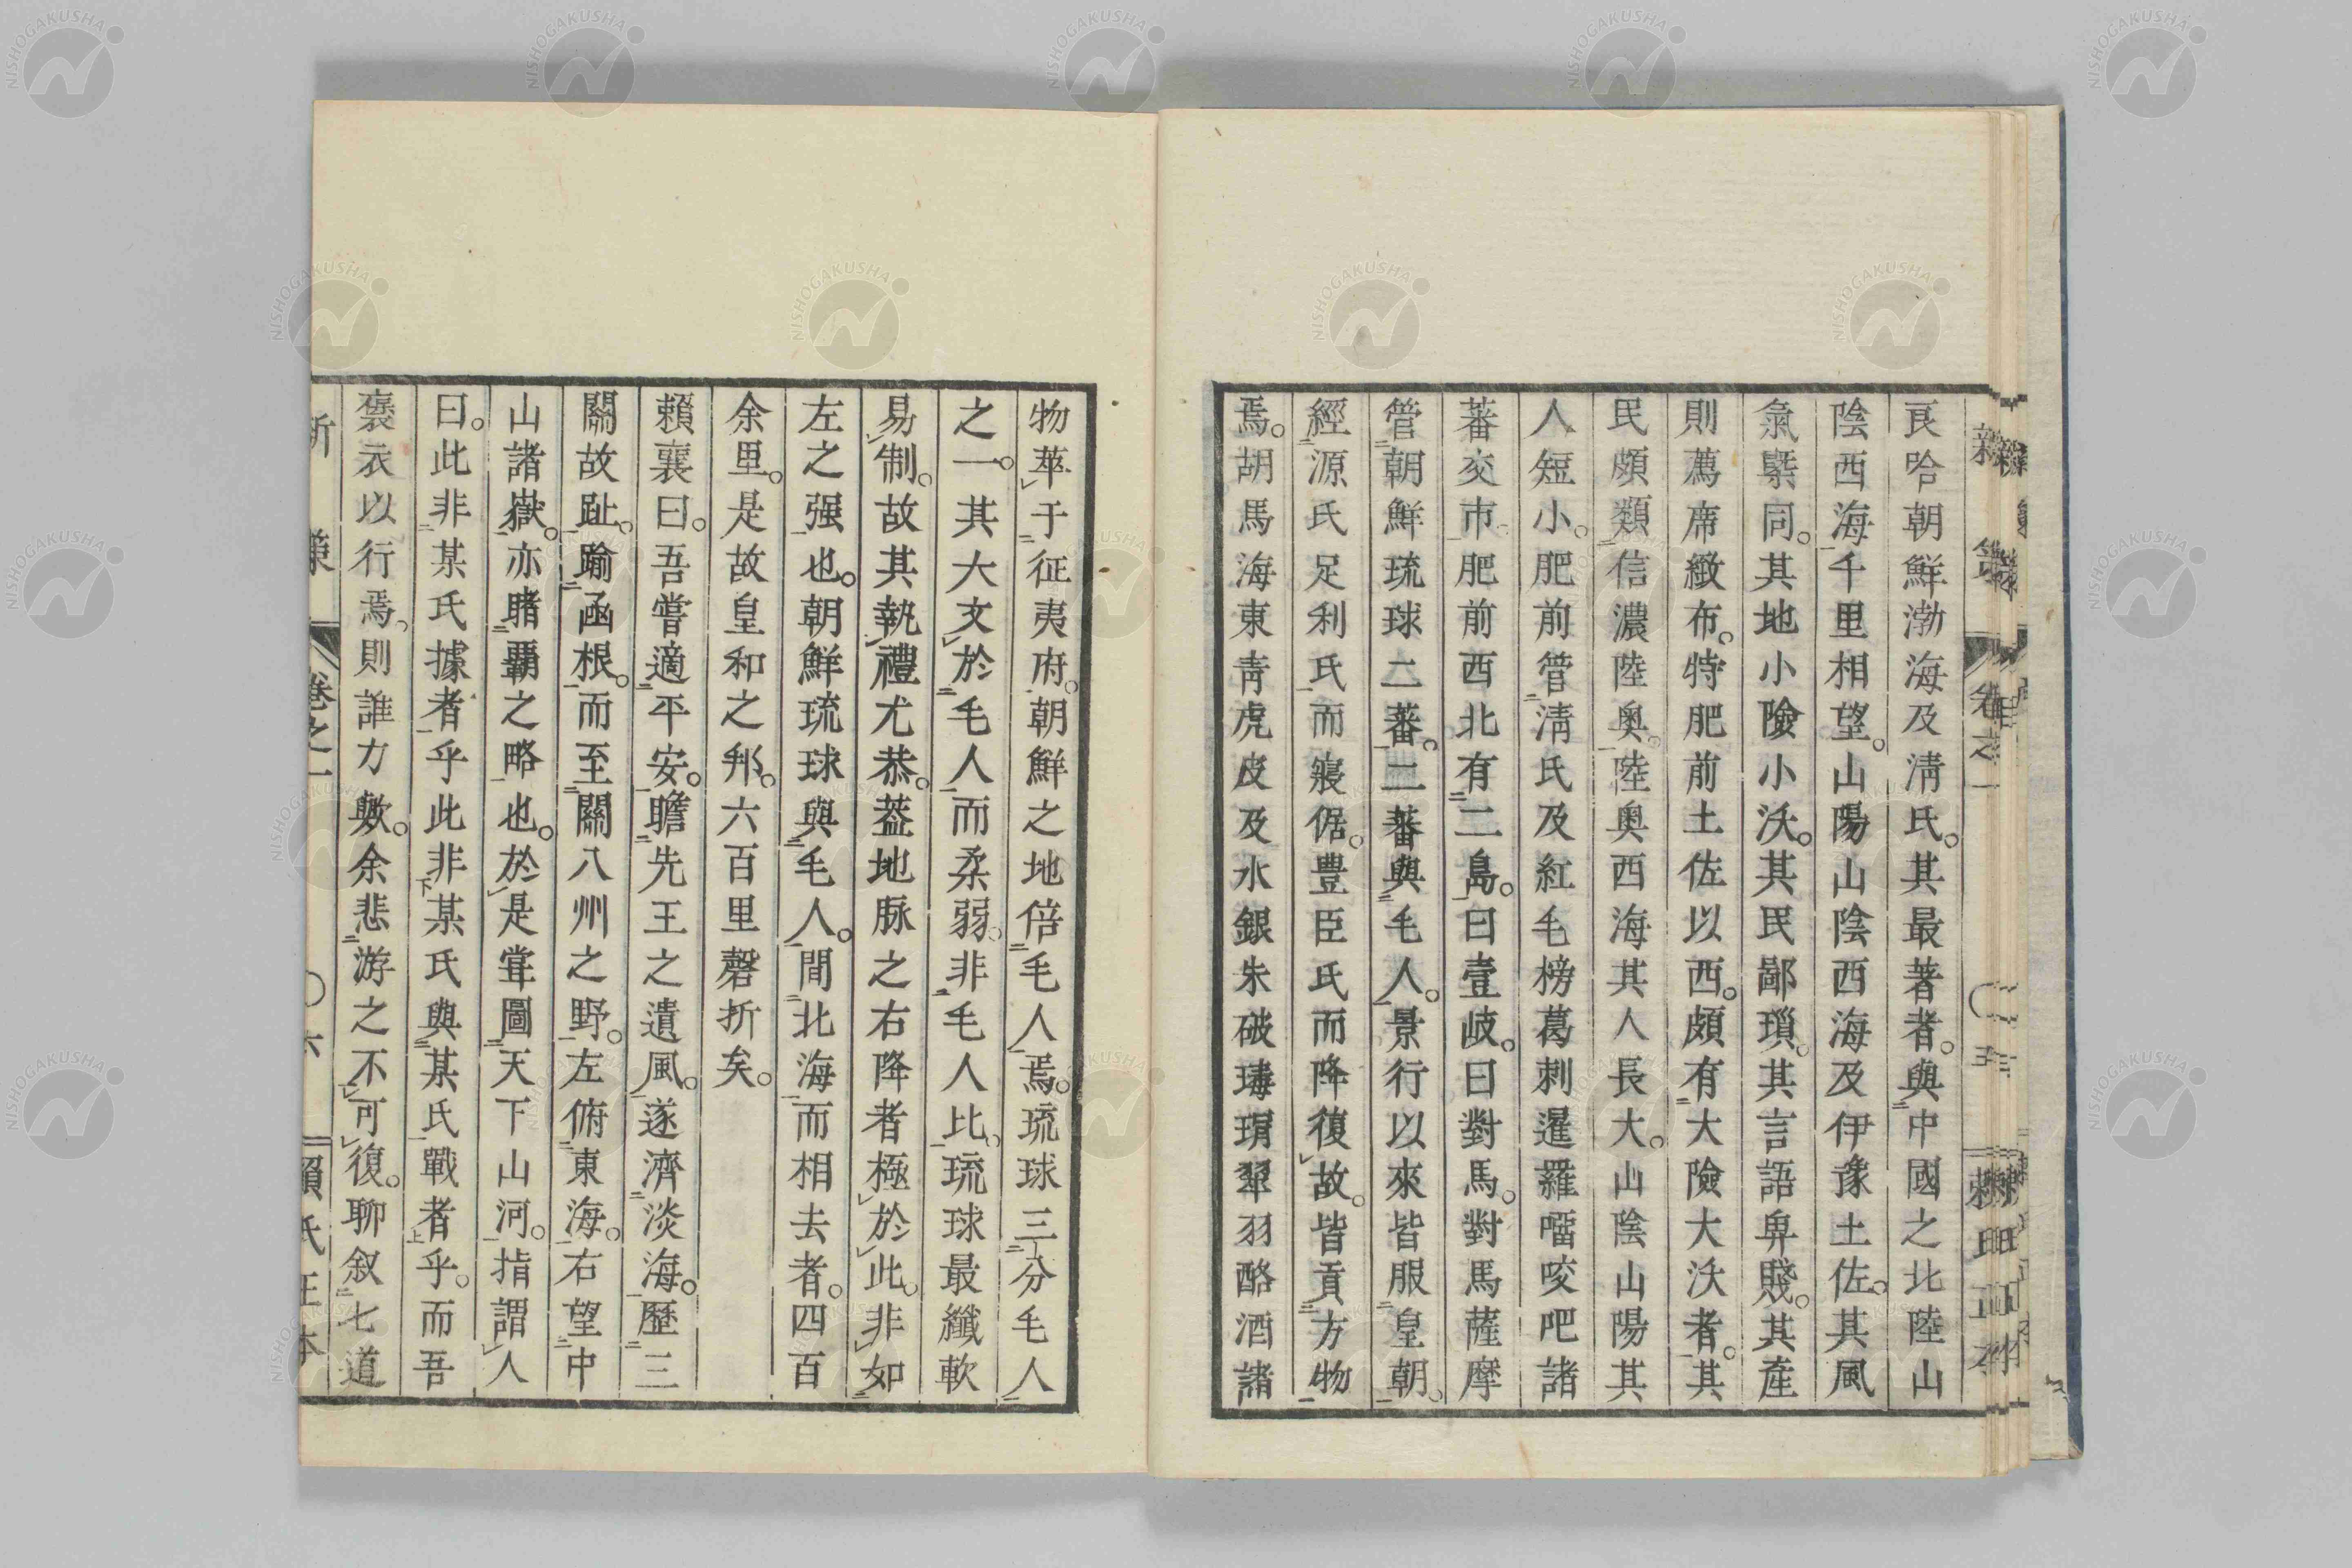 良哈朝鮮渤海及淸氏。其最著者。與中國之北陸山
陰西海千里相望。山陽山陰西海及伊豫土佐。其風
氣槩同。其地小險小沃。其民鄙瑣。其言語卑賤。其産
則薦席緻布。特肥前土佐以西。頗有大險大沃者。其
民頗類信濃陸奧。陸奧西海其人長大。山陰山陽其
人短小。肥前管淸氏及紅毛榜葛刺暹羅㗍咬吧諸
蕃交市肥前西北有二島。曰壹岐。曰對馬。對馬薩摩
管朝鮮琉球二蕃。二蕃與毛人。景行以來皆服皇朝。
經源氏足利氏而寢倨。豊臣氏而降復故。皆貢方物
焉。胡馬海東靑虎皮及水銀朱破瑇瑁翠羽酪酒諸
物萃于征夷府。朝鮮之地倍毛人焉。琉球三分毛人
之一。其大文於毛人而柔弱。非毛人比。琉球最纖軟
易制。故其執禮尤恭。葢地脉之右降者極於此。非如
左之强也。朝鮮琉球與毛人。間北海而相去者。四百
余里。是故皇和之邦。六百里磬折矣。
賴襄曰。吾嘗適平安。瞻先王之遺風。遂濟淡海。歷三
關故趾。踰函根。而至關八州之野。左俯東海。右望中
山諸嶽。亦睹覇之略也。於是嘗圖天下山河。指謂人
曰。此非某氏據者乎此非某氏與某氏戰者乎。而吾
褒衣以行焉。則誰力歟。余悲游之不可復。聊叙七道
新策 卷之一 〇六 賴氏正本